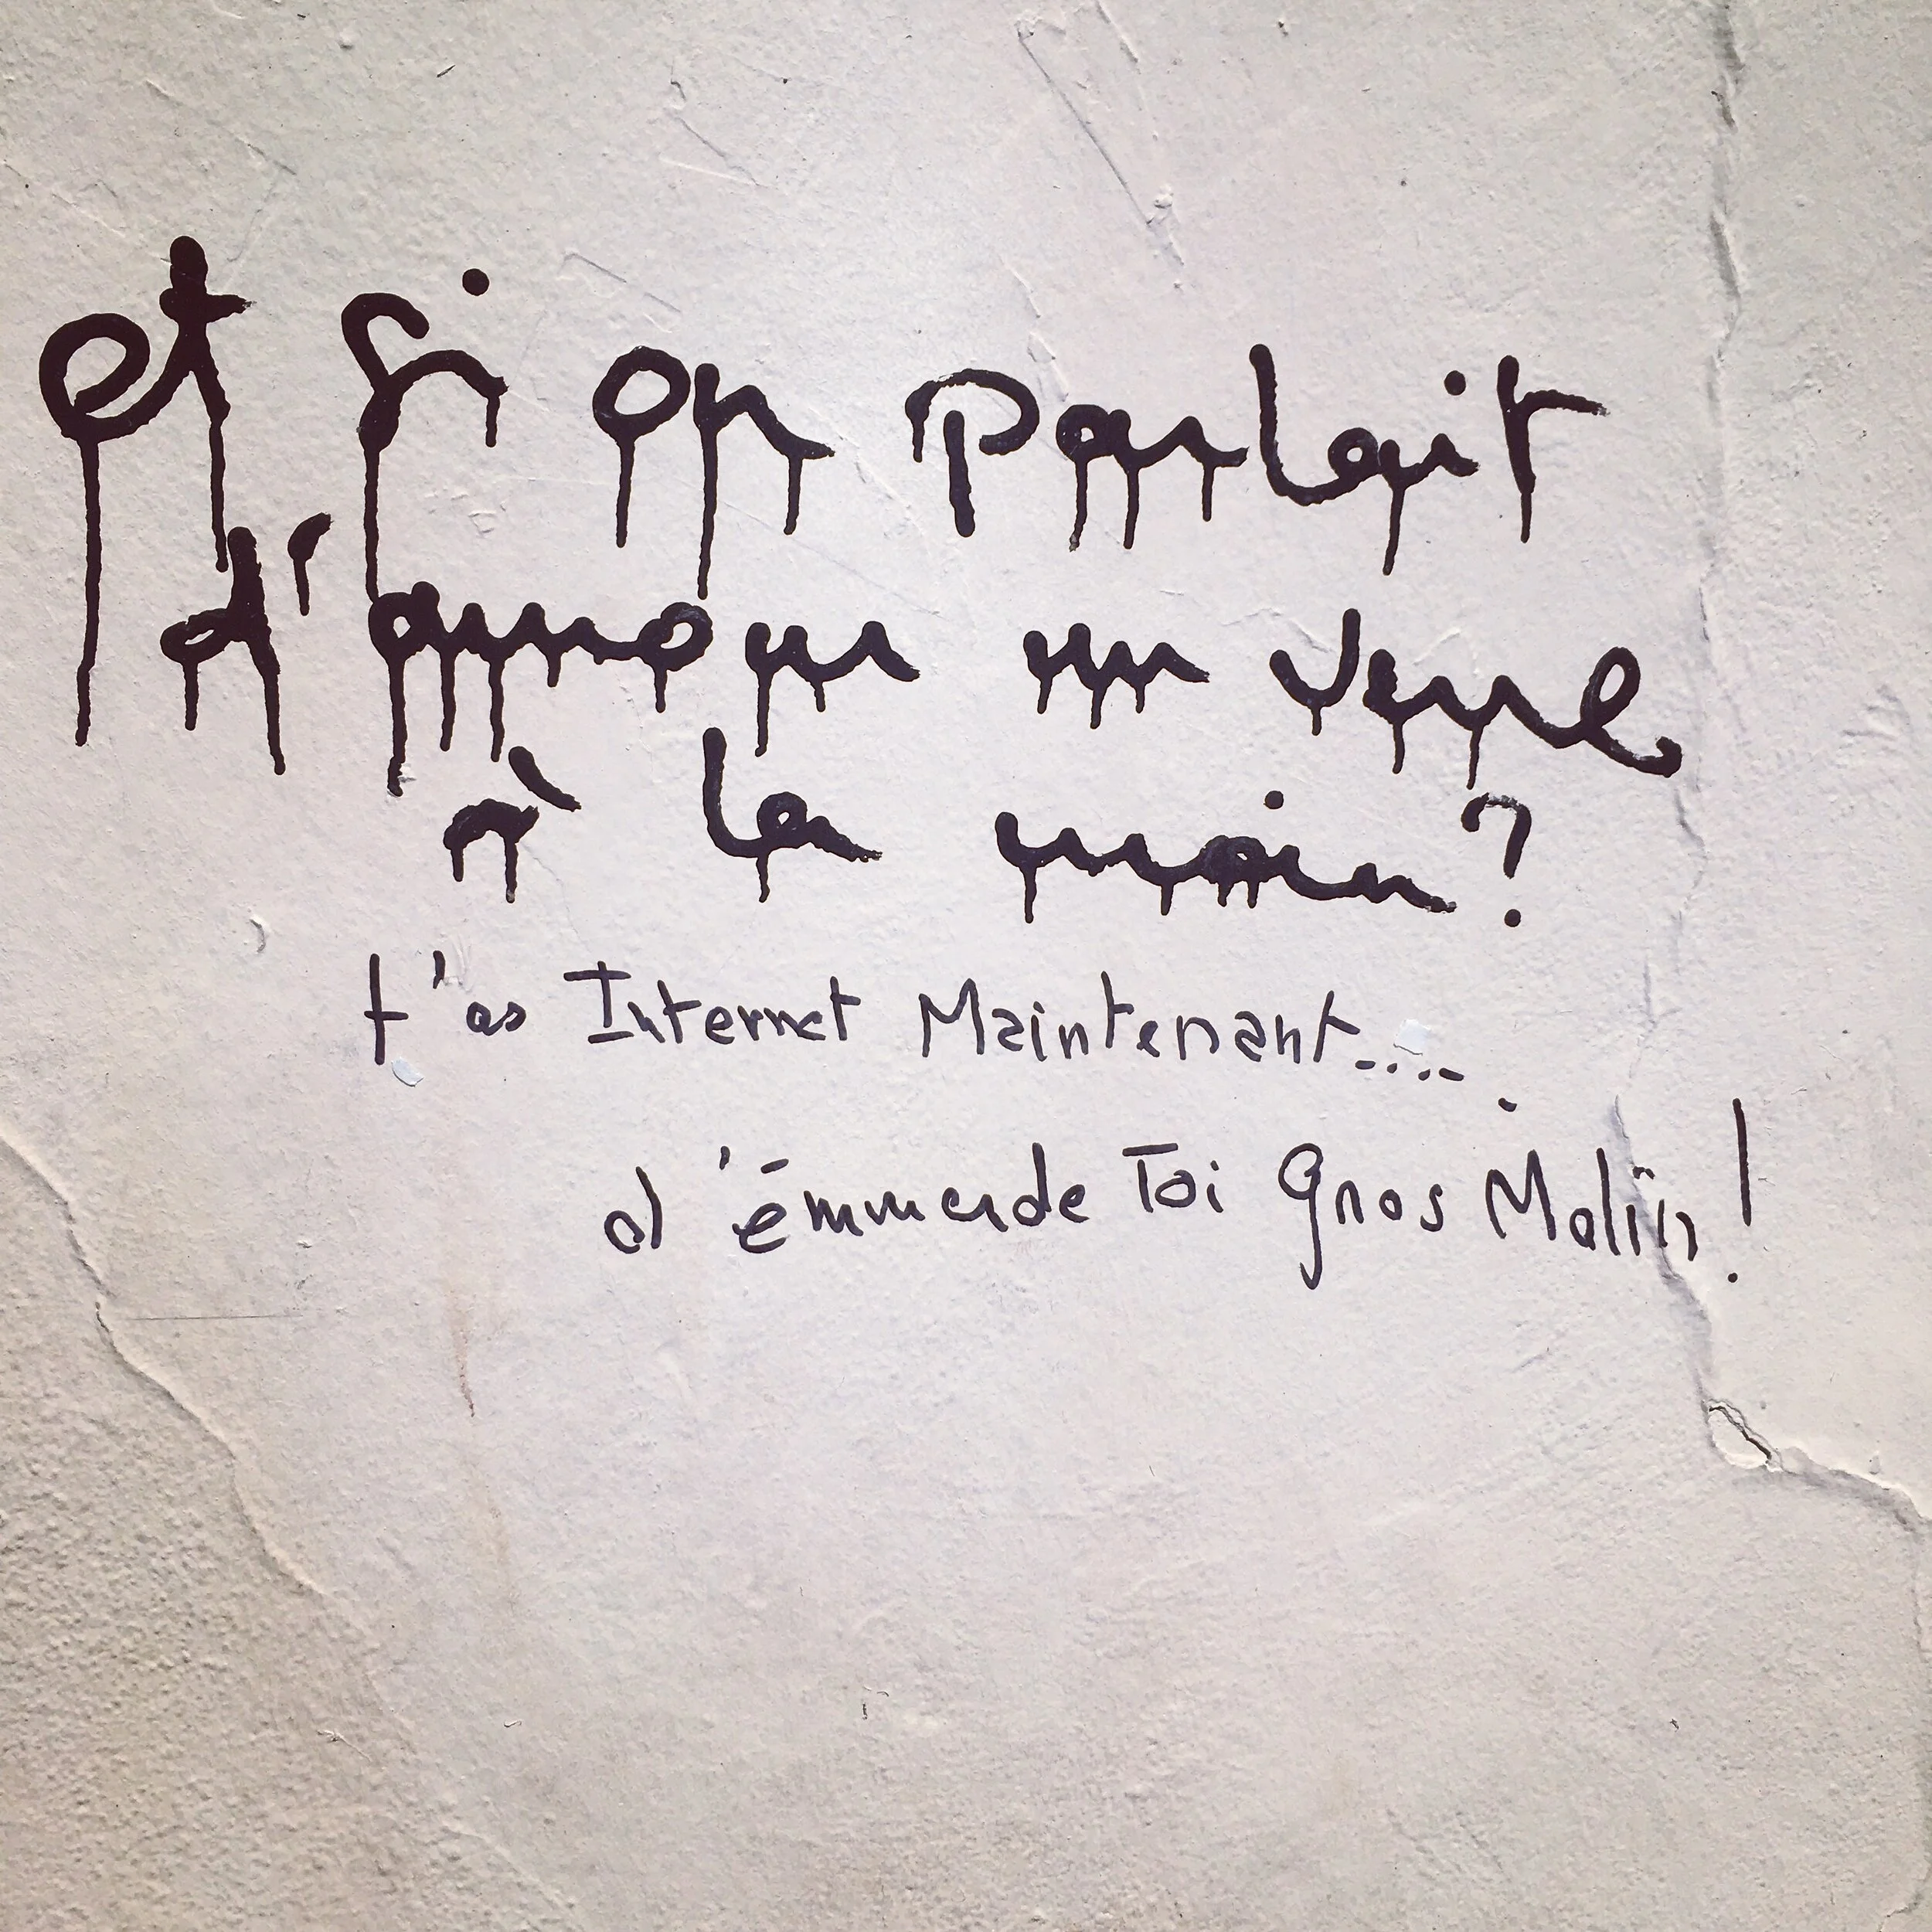 et si on parlait
d'amour un verre
à la main ?
t'as Internet Maintenant....
d'émmerde Toi gros Malin !